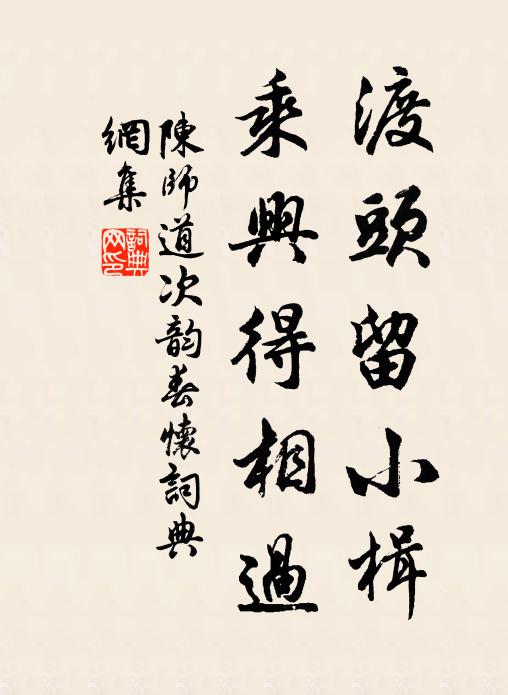 渡頭留小楫
乘興得相過
陳師道次韵春懷詞典
網集
詞典
网印